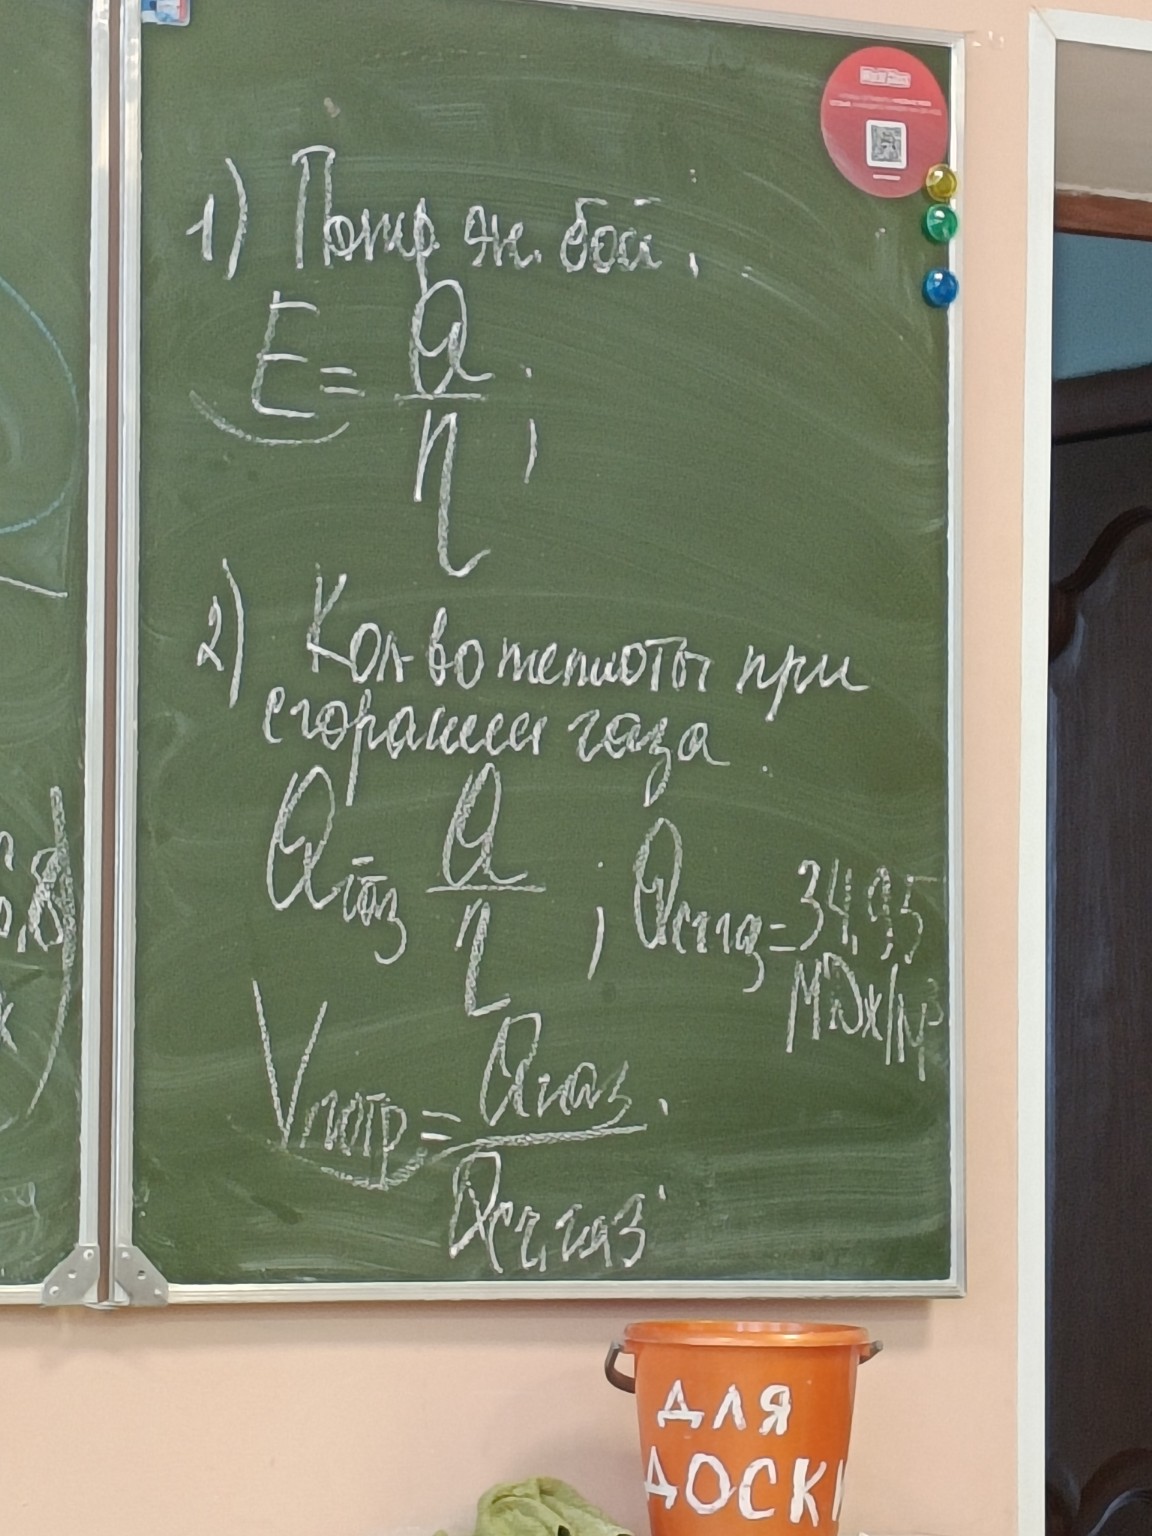 1) Потр. эн. бой.,
E = Q / η ;
2) Кол-во теплоты при
сгорании газа
Qгаз = Q / η ; Qсг.газ = 34,95
МДж/м³
Vпотр = Qгаз / Qсг.газ
6,8)
ДЛЯ
ДОСК